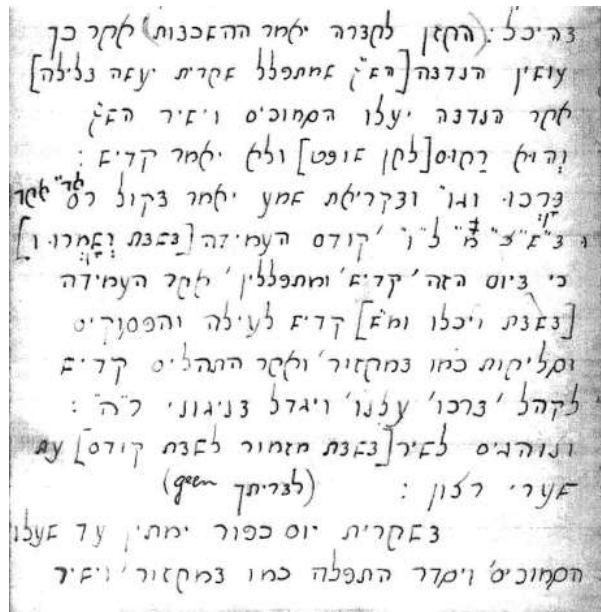 בהיכל: (החזן לחברה יאמר ההשכבות) אחר כך
עושין הנדבה [הש"ץ שמתפלל שחרית יעשה בלילה]
אחר הנדבה יעלו הסמוכים וישיר הש"ץ
וְהוּא רַחוּם [לחן שופט] ולא יאמר קדיש :
ברכו וגו' ובקריאת שמע יאמר בקול רם אחר
קודם העמידה [בשבת וְשָׁמְרוּ ו]
כי ביום הזה' קדיש' ומתפללין' אחר העמידה
[בשבת ויכלו ומ"ש] קדיש לעילה והפסוקים
וסליחות כמו במחזור' ואחר התהלים קדיש
לקהל 'ברכו' עלנו' ויגדל בניגוני ר"ה :
ונוהגים לשיר [בשבת מזמור לשבת קודם] עת
שערי רצון : (לצריתך geen)
בשחרית יום כפור ימתין עד שעלו
הסמוכים' ויסדר התפלה כמו במחזור' וישיר